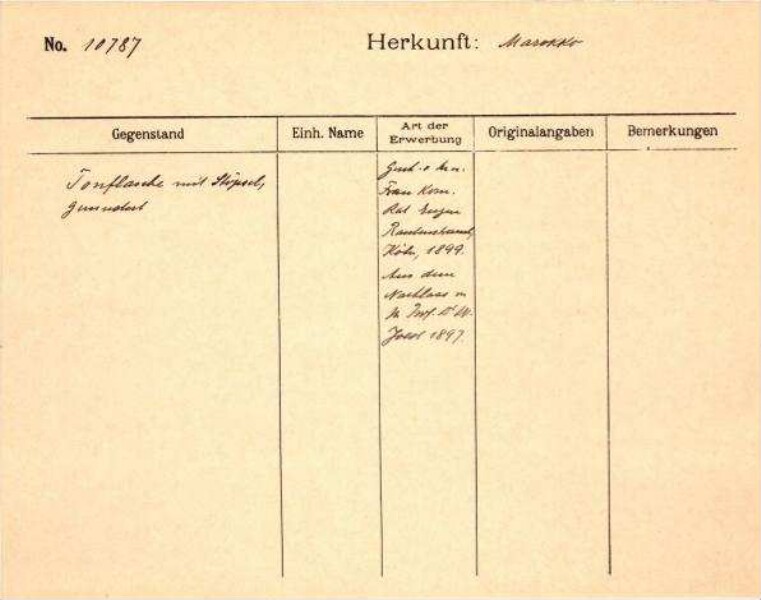 No. 10787 Herkunft: Marokko
Gegenstand Einh. Name Art der Erwerbung Originalangaben Bemerkungen
Tonflasche mit Stöpsel,
Gesch. v
Frau Kom.
Rat Eugen
Rautenstrauch,
Köln, 1899.
Aus dem
Nachlass v
Prof. Dr W.
Joest 1897.